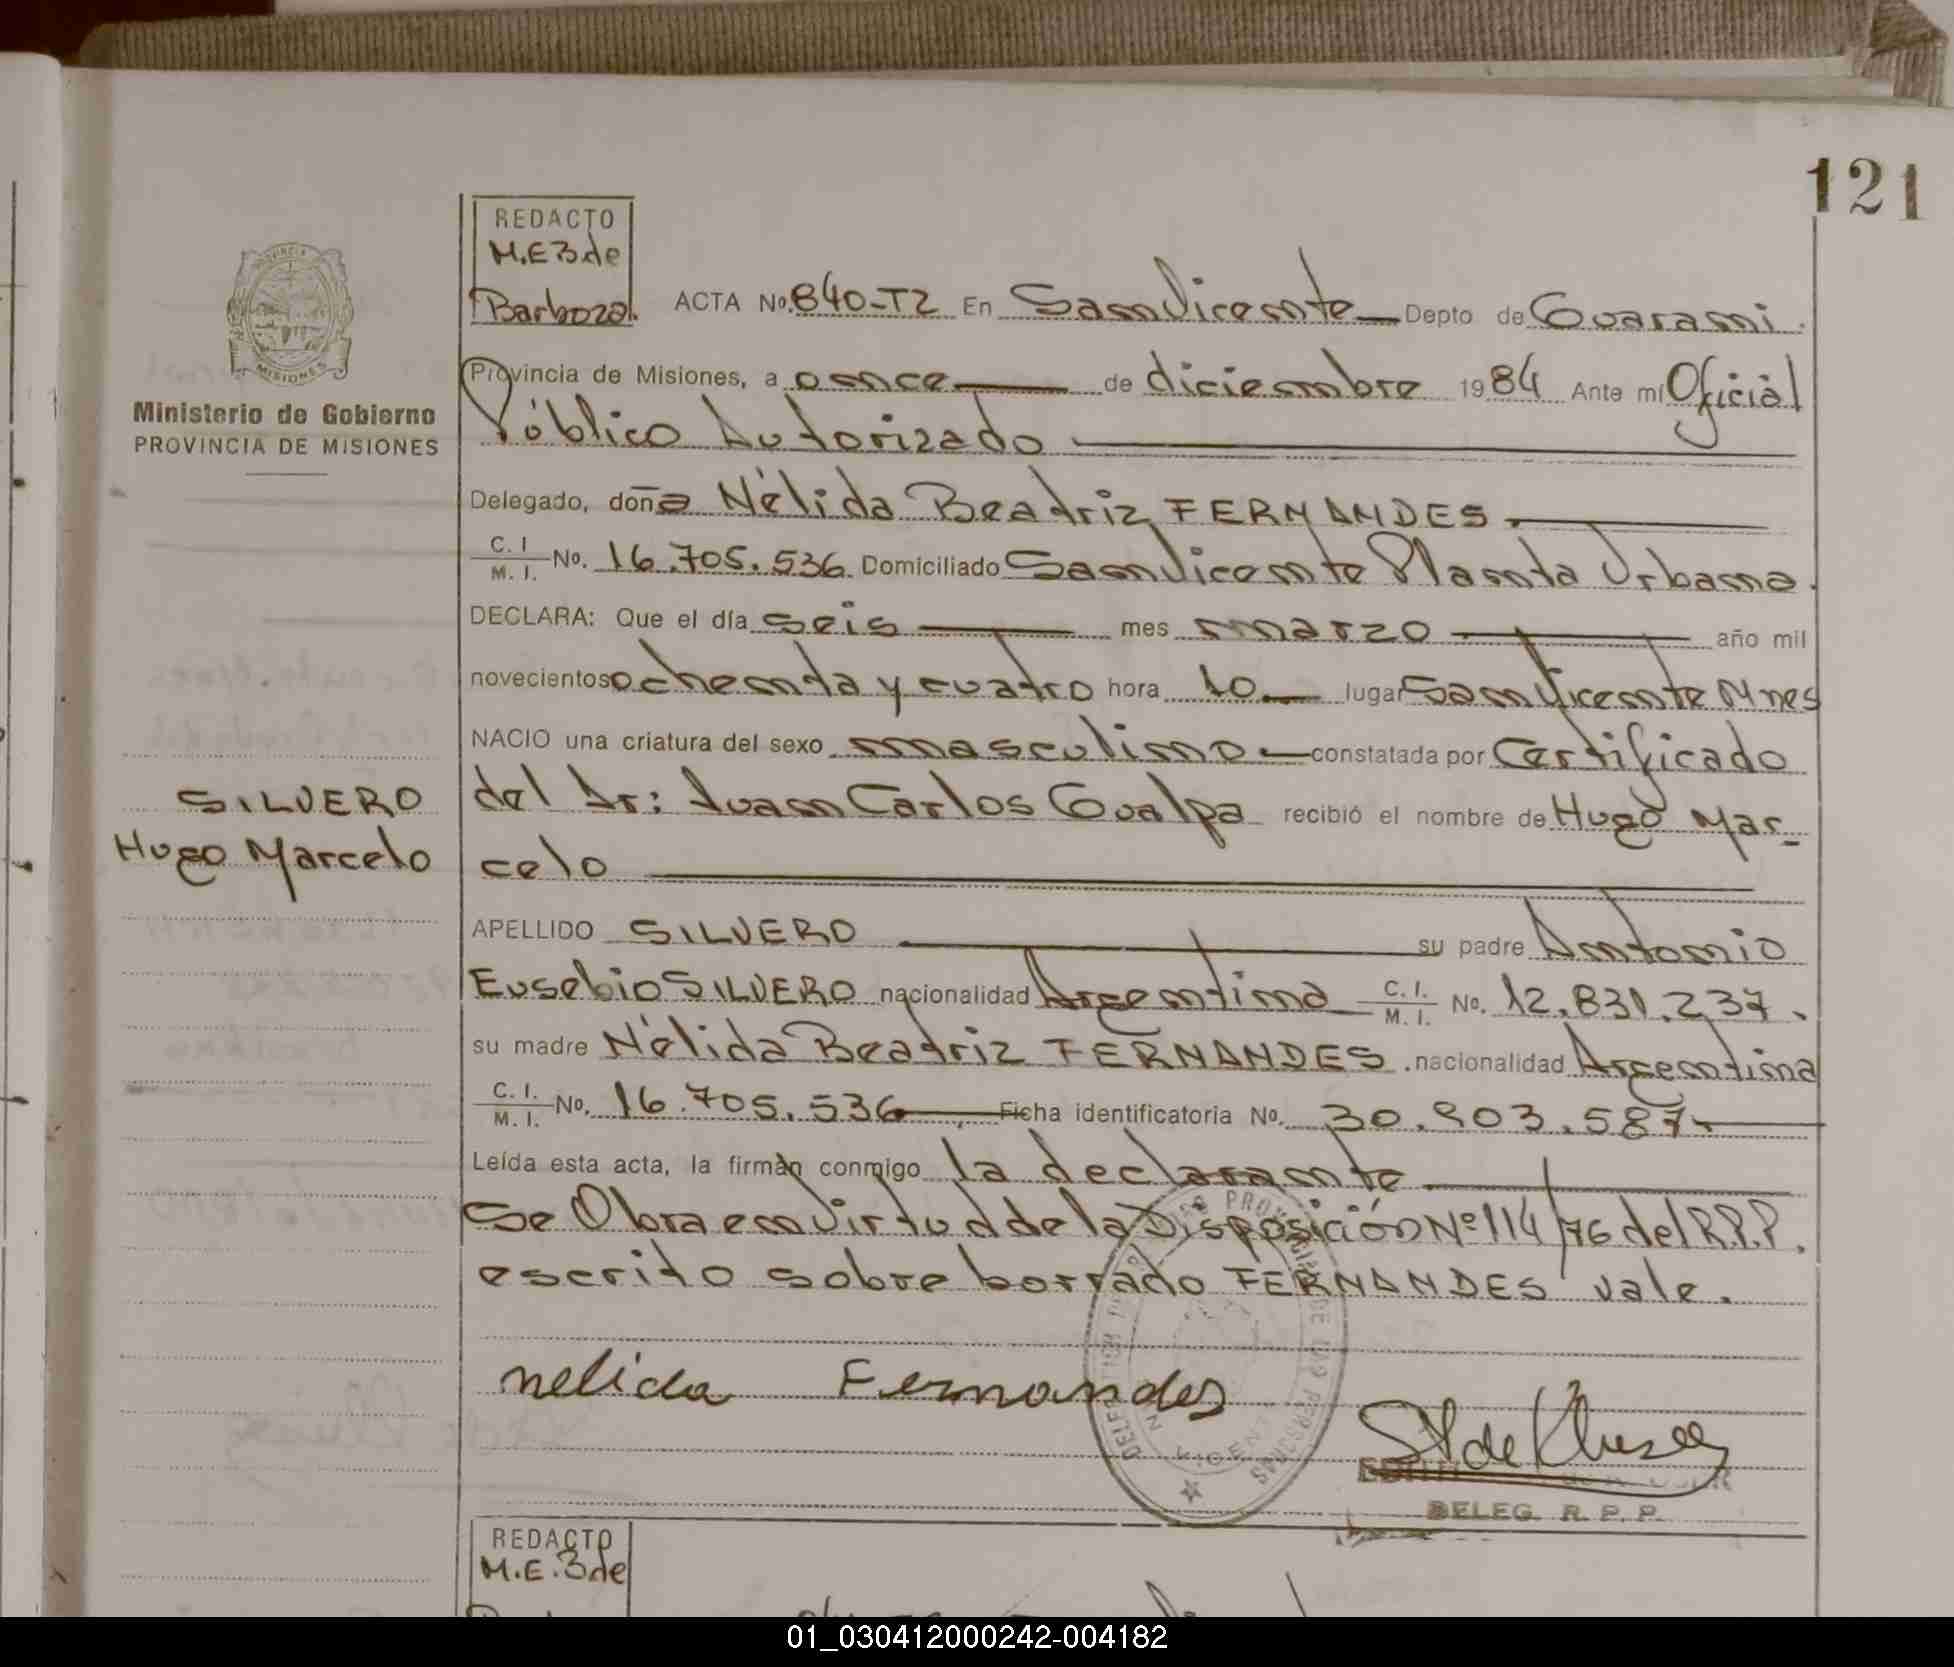 121
REDACTO
M.E.B de
Barboza.
PROVINCIA
MISIONES
Ministerio de Gobierno
PROVINCIA DE MISIONES
ACTA No. 840-T2 En San Vicente Depto de Guarani.
Provincia de Misiones, a once de diciembre 1984 Ante mí Oficial
Público Autorizado
Delegado, doña Nélida Beatriz FERNANDES.
C. I. M. I. No. 16.705.536 Domiciliado San Vicente Planta Urbana.
DECLARA: Que el día seis mes marzo año mil
novecientos ochenta y cuatro hora 10 lugar San Vicente Mnes
NACIO una criatura del sexo masculino constatada por Certificado
del Dr: Juan Carlos Gualpa recibió el nombre de Hugo Mar-
celo
SILVERO
Hugo Marcelo
APELLIDO SILVERO su padre Antonio
Eusebio SILVERO nacionalidad Argentina C. I. M. I. No. 12.831.237.
su madre Nélida Beatriz FERNANDES. nacionalidad Argentina
C. I. M. I. No. 16.705.536 Ficha identificatoria No. 30.903.587
Leída esta acta, la firmán conmigo la declarante
Se Obra en virtud de la Disposición Nº 114/76 del R.P.P.
escrito sobre borrado FERNANDES vale.
nelida Fernandes
DELEG. R. P. P.
REDACTO
M.E.B de
01_030412000242-004182